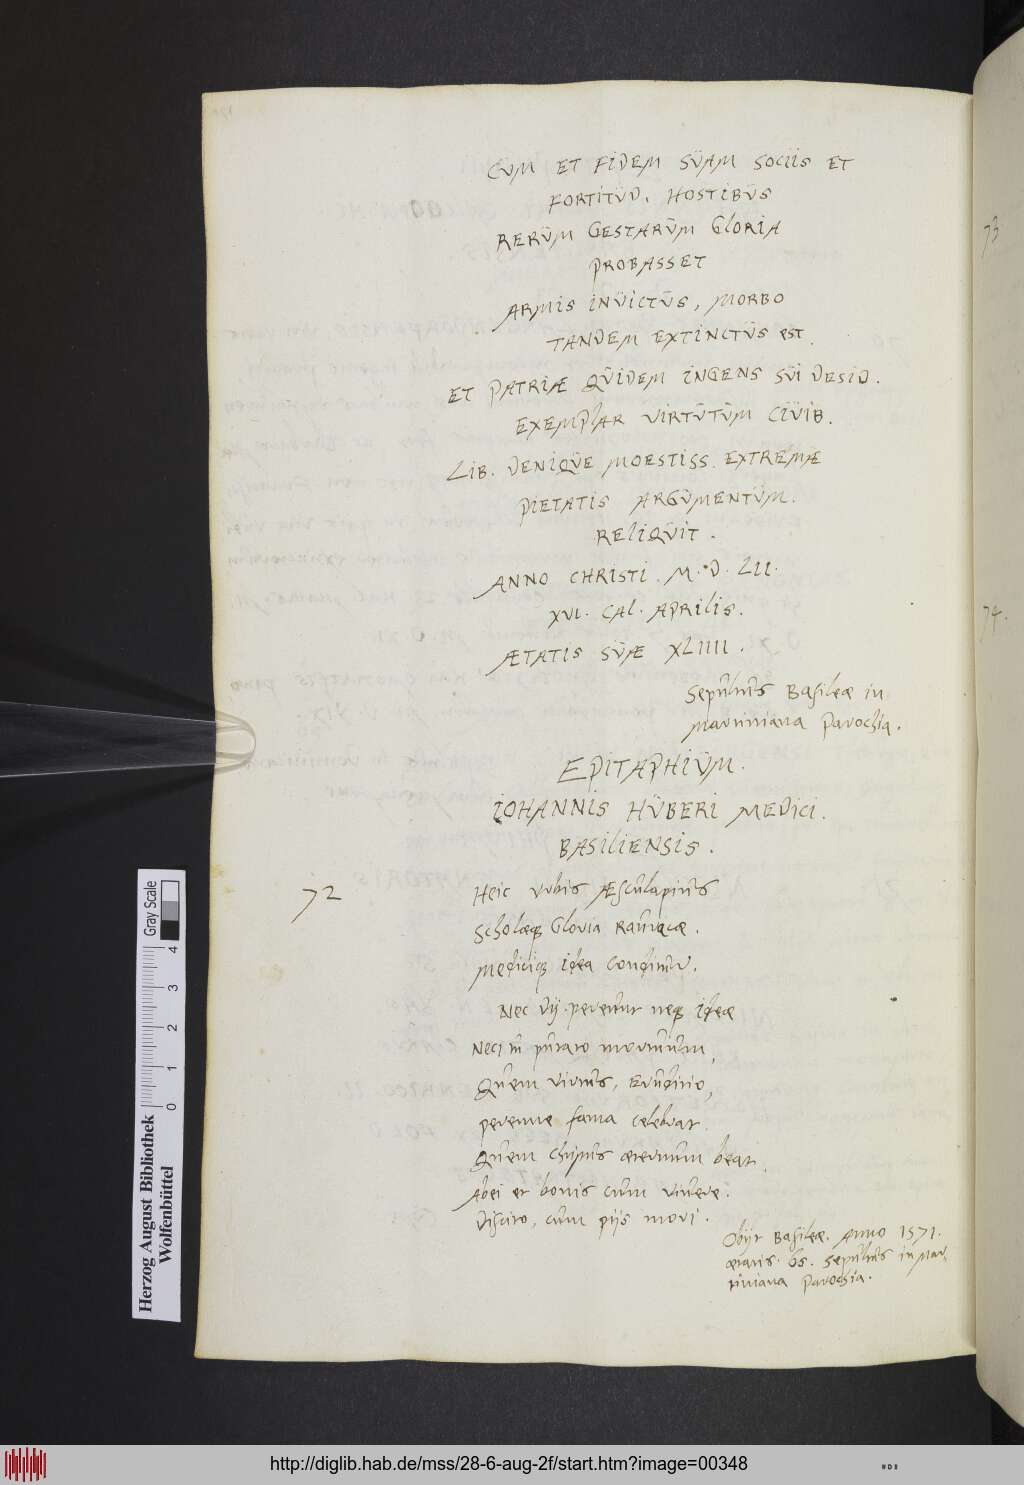 CUM ET FIDEM SUAM SOCIIS ET
FORTITUD. HOSTIBUS
RERUM GESTARUM GLORIA
PROBASSET
ARMIS INVICTUS, MORBO
TANDEM EXTINCTUS est.
ET PATRIÆ QUIDEM INGENS SUI DESID.
EXEMPLAR VIRTUTUM CIVIB.
LIB. DENIQUE MOESTISS. EXTREMÆ
PIETATIS ARGUMENTUM.
RELIQUIT.
ANNO CHRISTI. M.D.LII.
XVI. CAL. APRILIS.
ÆTATIS SUÆ XLIIII.
Sepultus Basileæ in
Martiniana Parochia.
EPITAPHIUM.
IOHANNIS HUBERI MEDICI.
BASILIENSIS.
72
Heic Urbis Æsculapius
Scholæq Gloria Rauricæ.
Mediciq idea conditur.
Nec Dij pereunt neq ideæ
Neci
mortuum,
Quem vivus, Eruditio,
perenne fama celebrat.
Quem Christus æternum beat.
Abei et bonis cum vivere.
Discito, cum piis mori.
Obijt Basileæ. Anno 1571.
ætatis. 65. Sepultus in Mar-
tiniana Parochia.
73
74.
Herzog August Bibliothek
Wolfenbüttel
Gray Scale
0 1 2 3 4
http://diglib.hab.de/mss/28-6-aug-2f/start.htm?image=00348